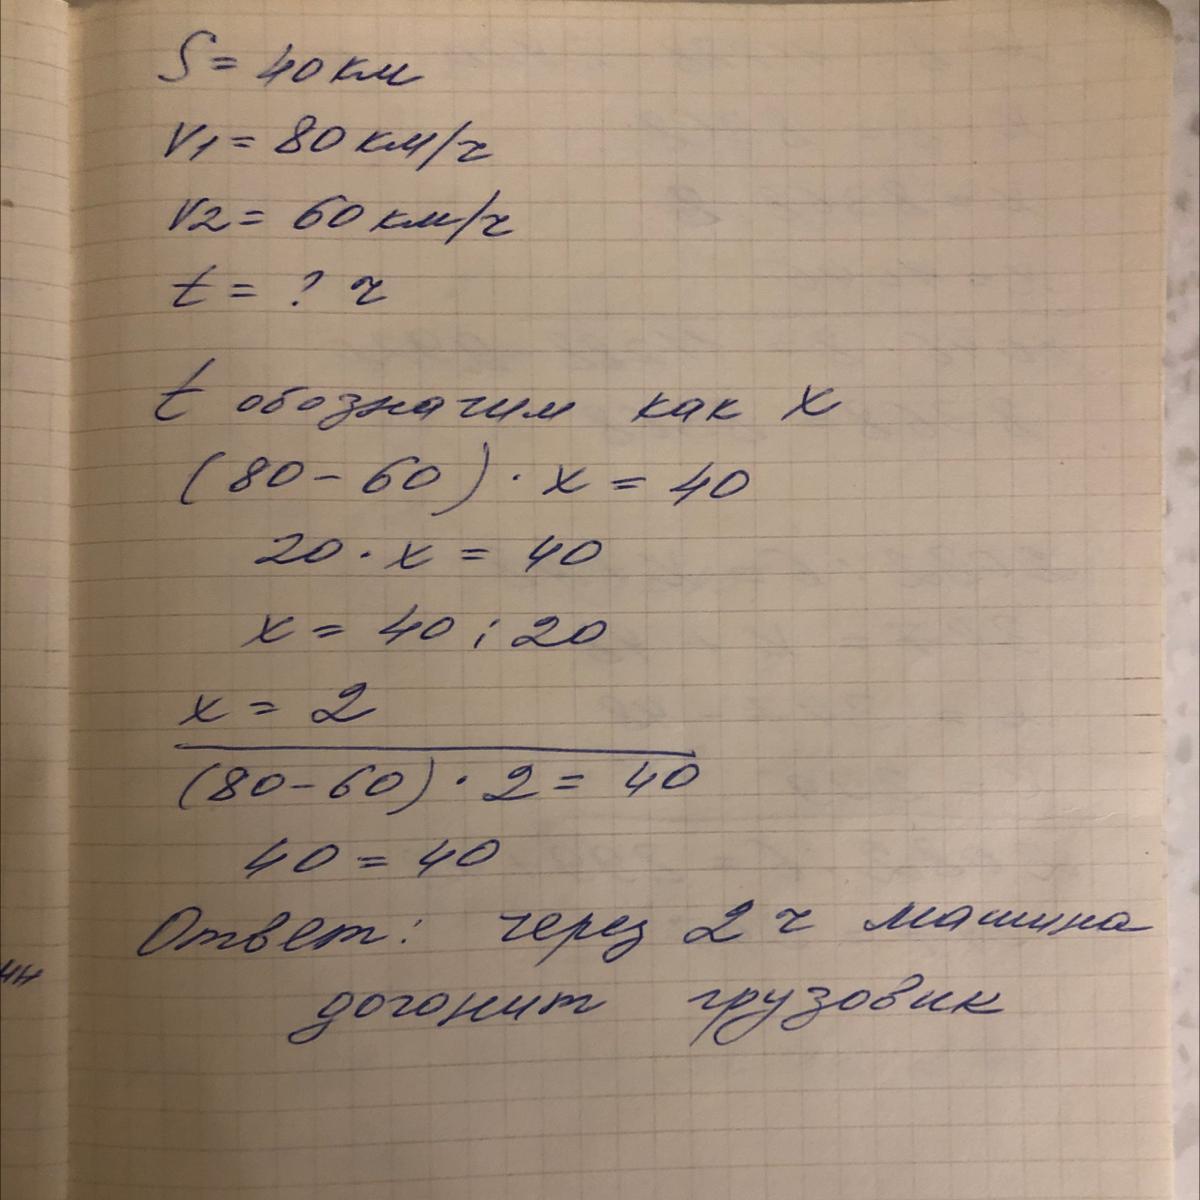 S = 40 км
V1 = 80 км/ч
V2 = 60 км/ч
t = ? ч
t обозначим как x
(80 - 60) · x = 40
20 · x = 40
x = 40 : 20
x = 2
(80 - 60) · 2 = 40
40 = 40
Ответ: через 2 ч машина
догонит грузовик